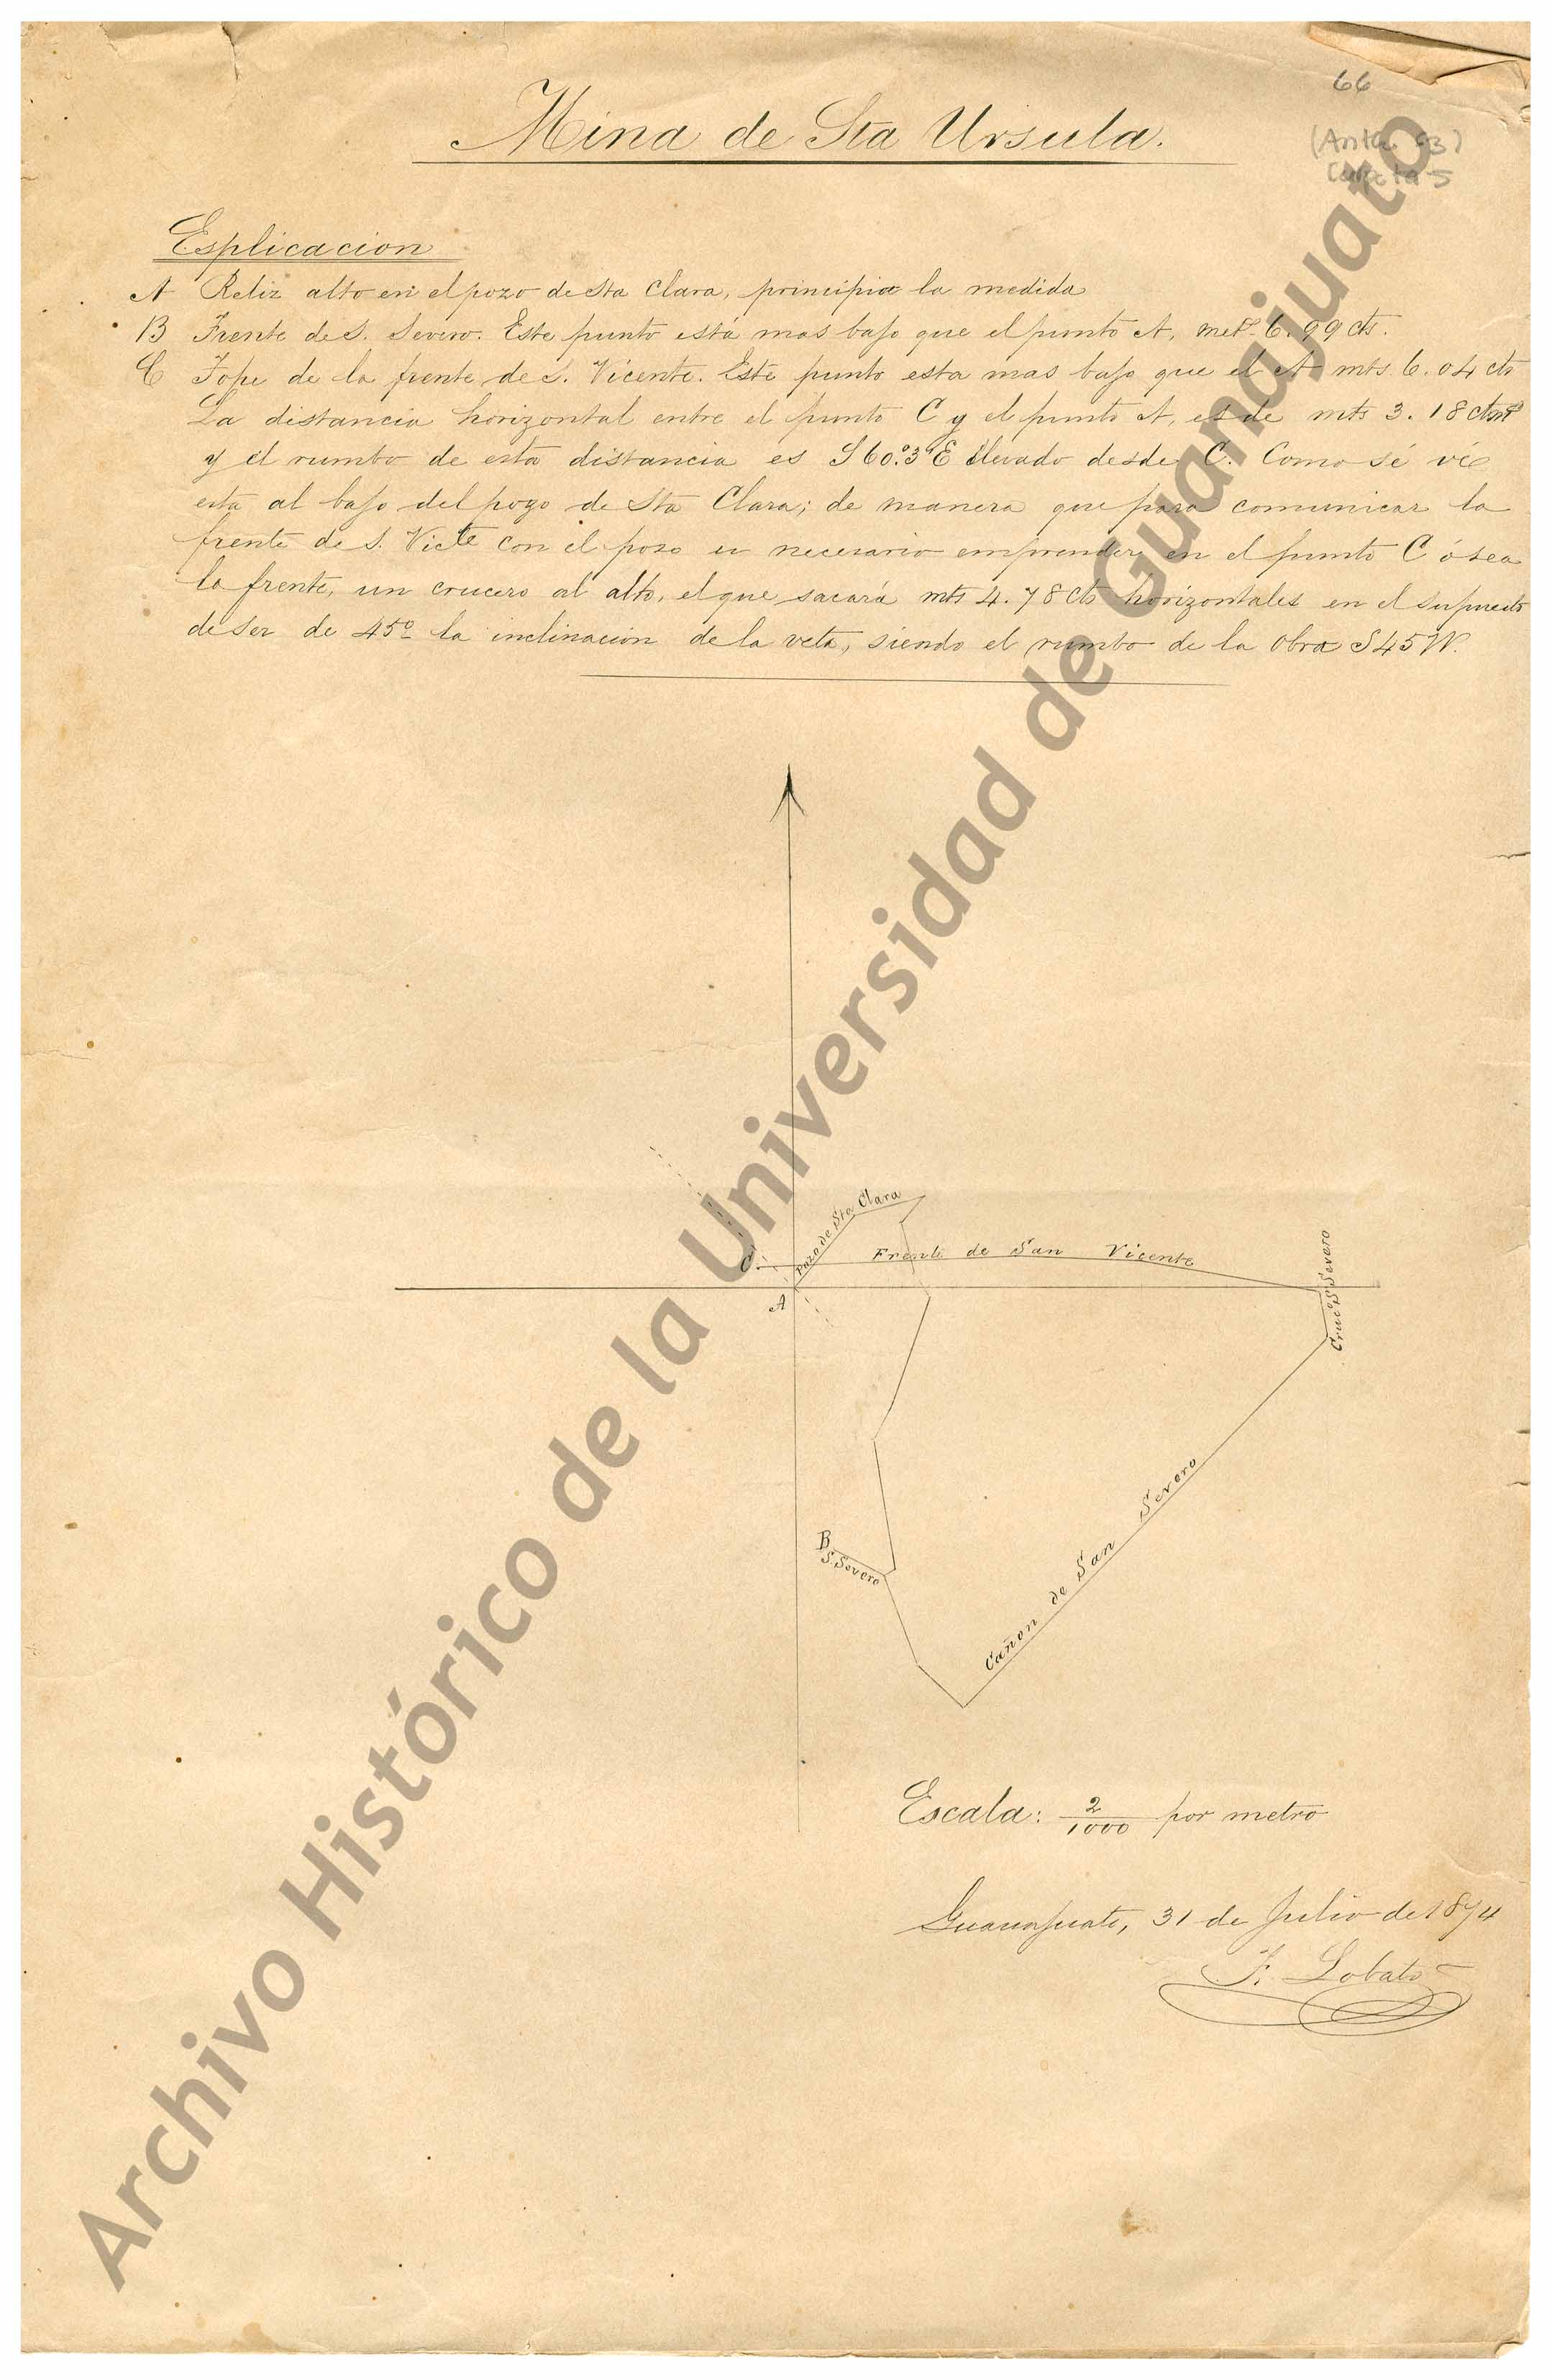 66
(Anta 63)
Carpeta 5
Mina de Sta Ursula.
Esplicacion
A Reliz alto en el pozo de Sta Clara, principia la medida
B Frente de S. Severo. Este punto está mas bajo que el punto A, met.s 6.99 cts.
C Tope de la frente de S. Vicente. Este punto esta mas bajo que el A mts. 6.04 cts
La distancia horizontal entre el punto C y el punto A, es de mts 3.18
y el rumbo de esta distancia es S60.°3'E llevado desde C. Como sé vé
esta al bajo del pozo de Sta Clara; de manera que para comunicar la
frente de S. Victe con el pozo es necesario emprender en el punto C ó sea
la frente, un crucero al alto, el que sacará mts 4.78 cts horizontales en el supuesto
de ser de 45° la inclinacion de la veta, siendo el rumbo de la obra S45W.
Pozo de Sta Clara
C.
Frente de San Vicente
A
Cruc.o S. Severo
B
S. Severo
Cañon de San Severo
Escala: 2/1000 por metro
Guanajuato, 31 de Julio de 1874
F. Lobato
Archivo Histórico de la Universidad de Guanajuato